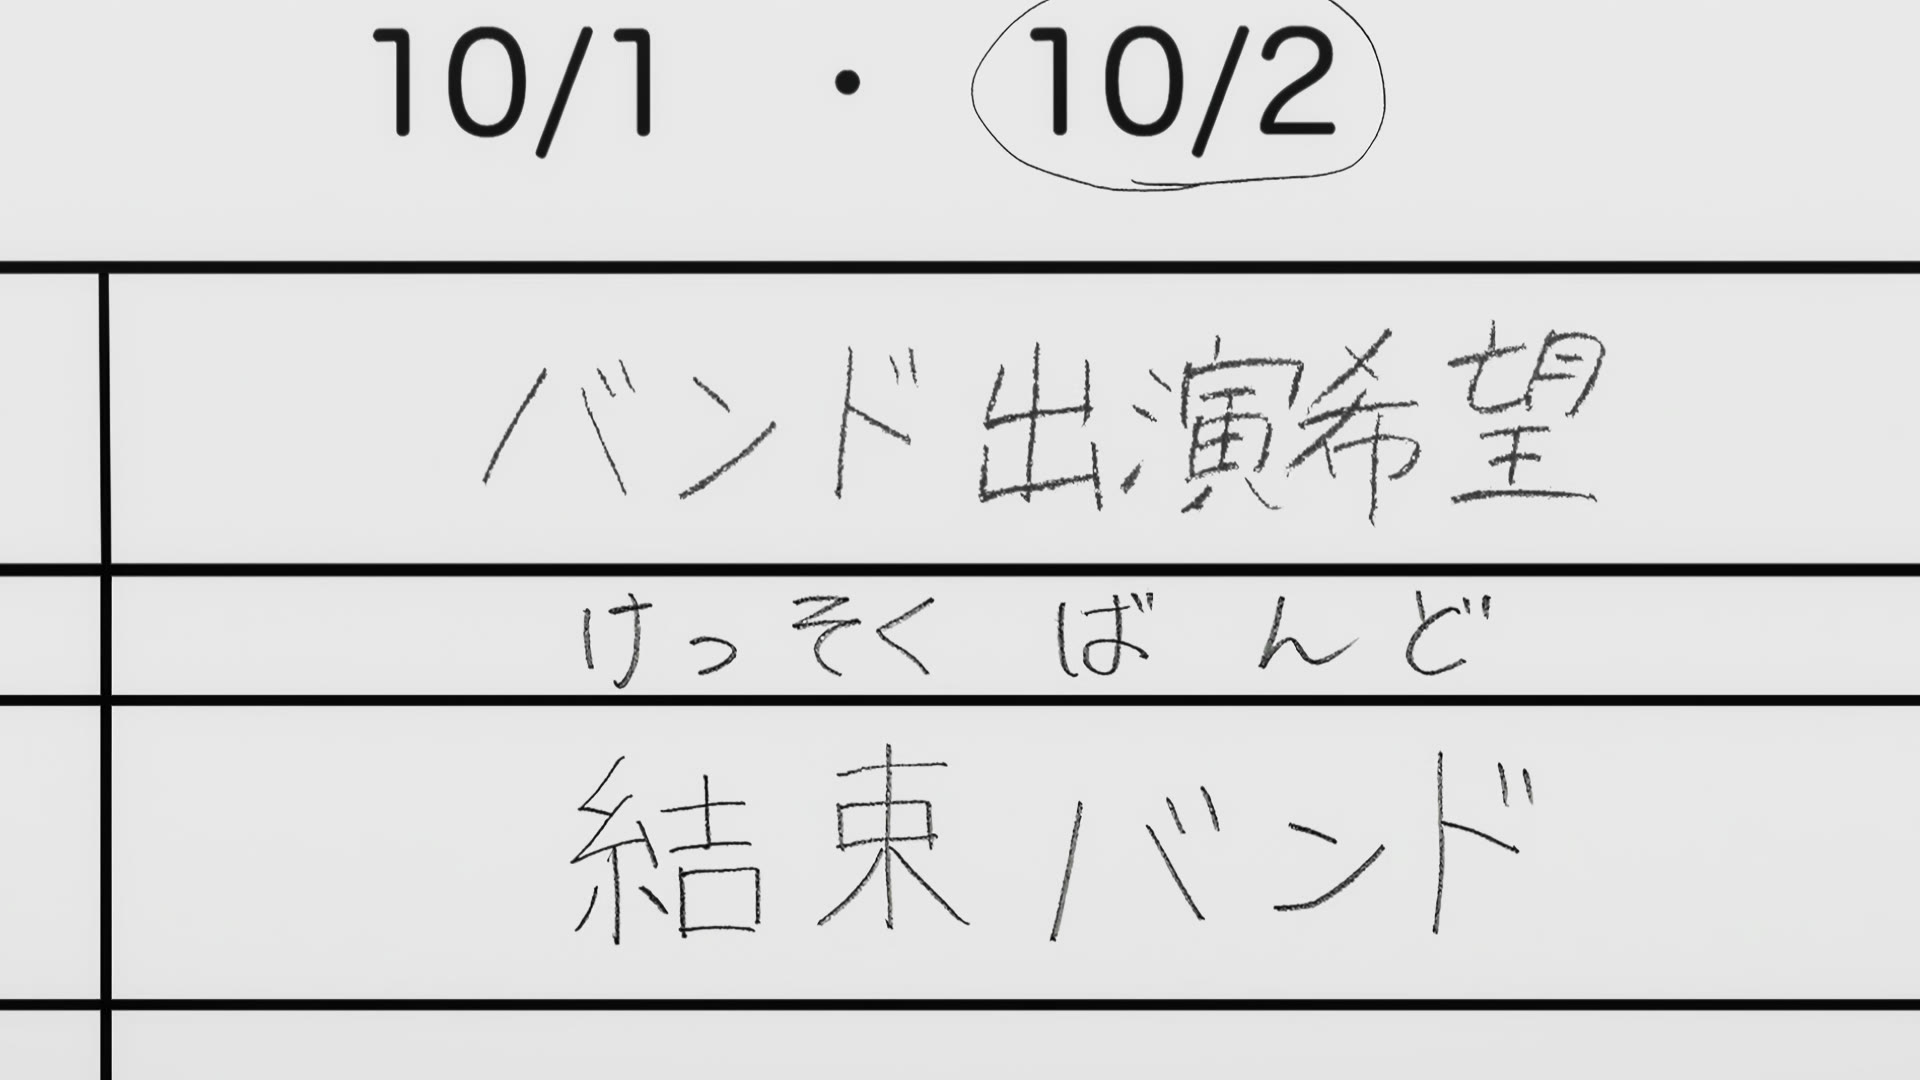 10/1 ・ 10/2
バンド出演希望
けっそく ばんど
結束バンド